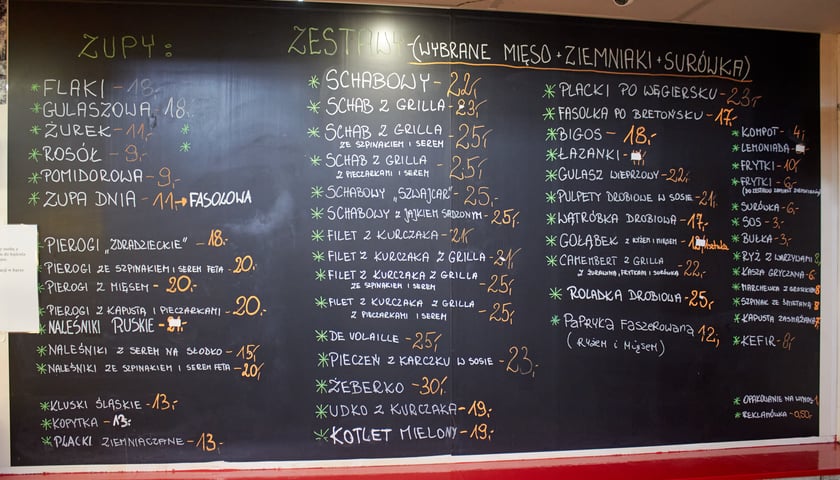 ZUPY:
FLAKI - 18,-
GULASZOWA 18,-
ŻUREK - 11,-
ROSÓŁ - 9,-
POMIDOROWA - 9,-
ZUPA DNIA - 11 → FASOLOWA
PIEROGI „ZDRADZIECKIE" - 18,-
PIEROGI ZE SZPINAKIEM I SEREM FETA 20,-
PIEROGI Z MIĘSEM - 20,-
PIEROGI Z KAPUSTĄ I PIECZARKAMI - 20,-
NALEŚNIKI RUSKIE -
NALEŚNIKI Z SEREM NA SŁODKO - 15,-
NALEŚNIKI ZE SZPINAKIEM I SEREM FETA - 20,-
KLUSKI ŚLĄSKIE - 13,-
KOPYTKA - 13,-
PLACKI ZIEMNIACZANE - 13,-
ZESTAWY (WYBRANE MIĘSO + ZIEMNIAKI + SURÓWKA)
SCHABOWY - 22,-
SCHAB Z GRILLA - 23,-
SCHAB Z GRILLA - 25,-
ZE SZPINAKIEM I SEREM
SCHAB Z GRILLA - 25,-
Z PIECZARKAMI I SEREM
SCHABOWY „SZWAJCAR" - 25,-
SCHABOWY Z JAJKIEM SADZONYM - 25,-
FILET Z KURCZAKA - 21,-
FILET Z KURCZAKA Z GRILLA - 21,-
FILET Z KURCZAKA Z GRILLA - 25,-
ZE SZPINAKIEM I SEREM
FILET Z KURCZAKA Z GRILLA - 25,-
Z PIECZARKAMI I SEREM
DE VOLAILLE - 25,-
PIECZEŃ Z KARCZKU W SOSIE - 23,-
ŻEBERKO - 30,-
UDKO Z KURCZAKA - 19,-
KOTLET MIELONY - 19,-
PLACKI PO WĘGIERSKU - 23,-
FASOLKA PO BRETOŃSKU - 17,-
BIGOS - 18,-
ŁAZANKI -
GULASZ WIEPRZOWY - 22,-
PULPETY DROBIOWE W SOSIE - 21,-
WĄTRÓBKA DROBIOWA - 17,-
GOŁĄBEK Z RYŻEM I MIĘSEM -
CAMEMBERT Z GRILLA - 22,-
Z ŻURAWINĄ, FRYTKAMI I SURÓWKĄ
ROLADKA DROBIOWA - 25,-
PAPRYKA FASZEROWANA 12,-
(RYŻEM I MIĘSEM)
KOMPOT - 4,-
LEMONIADA -
FRYTKI - 10,-
FRYTKI - 6,-
(DO ZESTAWU ZAMIAST ZIEMNIAKÓW)
SURÓWKA - 6,-
SOS - 3,-
BUŁKA - 3,-
RYŻ Z WARZYWAMI 8,
KASZA GRYCZANA - 6,
MARCHEWKA Z GROSZKIEM 8
SZPINAK ZE ŚMIETANĄ 8
KAPUSTA ZASMAŻANA 7
KEFIR - 8,-
OPAKOWANIE NA WYNOS - 1
REKLAMÓWKA - 0,50,-